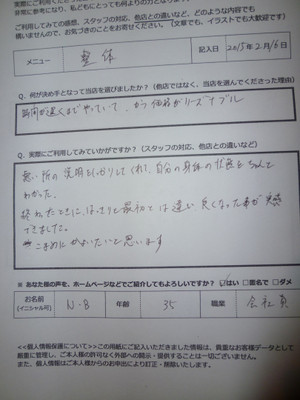 非常に参考になり、私どもにとっても何よりの力となります。
ご利用してみての感想、スタッフの対応、他店との違いなど、どのような内容でも
構いませんので、お気づきのことをお書きください。（文章でも、イラストでも大歓迎です）
メニュー 整体 記入日 2015年2月16日
Q．何が決め手となって当店を選びましたか？（他店ではなく、当店を選んでくださった理由）
時間が遅くまでやっていて、かつ価格がリーズナブル
Q．実際にご利用してみていかがですか？（スタッフの対応、他店との違いなど）
悪い所の説明をしっかりしてくれて、自分の身体の状態をちゃんと
わかった。
終わったときには、はっきりと最初とは違い良くなった事が実感
できました。
こまめにかよいたいと思います
※ あなた様の声を、ホームページなどでご紹介してもよろしいですか？ ☑はい □匿名で □ダメ
お名前 （イニシャル可） N・B 年齢 35 職業 会社員
<<個人情報保護について>>この用紙にご記入いただきました情報は、貴重なお客様データとして、
厳重に管理し、ご本人様の許可なく外部への開示・提供することは一切ございません。
また、個人情報はご本人様からのお申出により訂正・削除いたします。